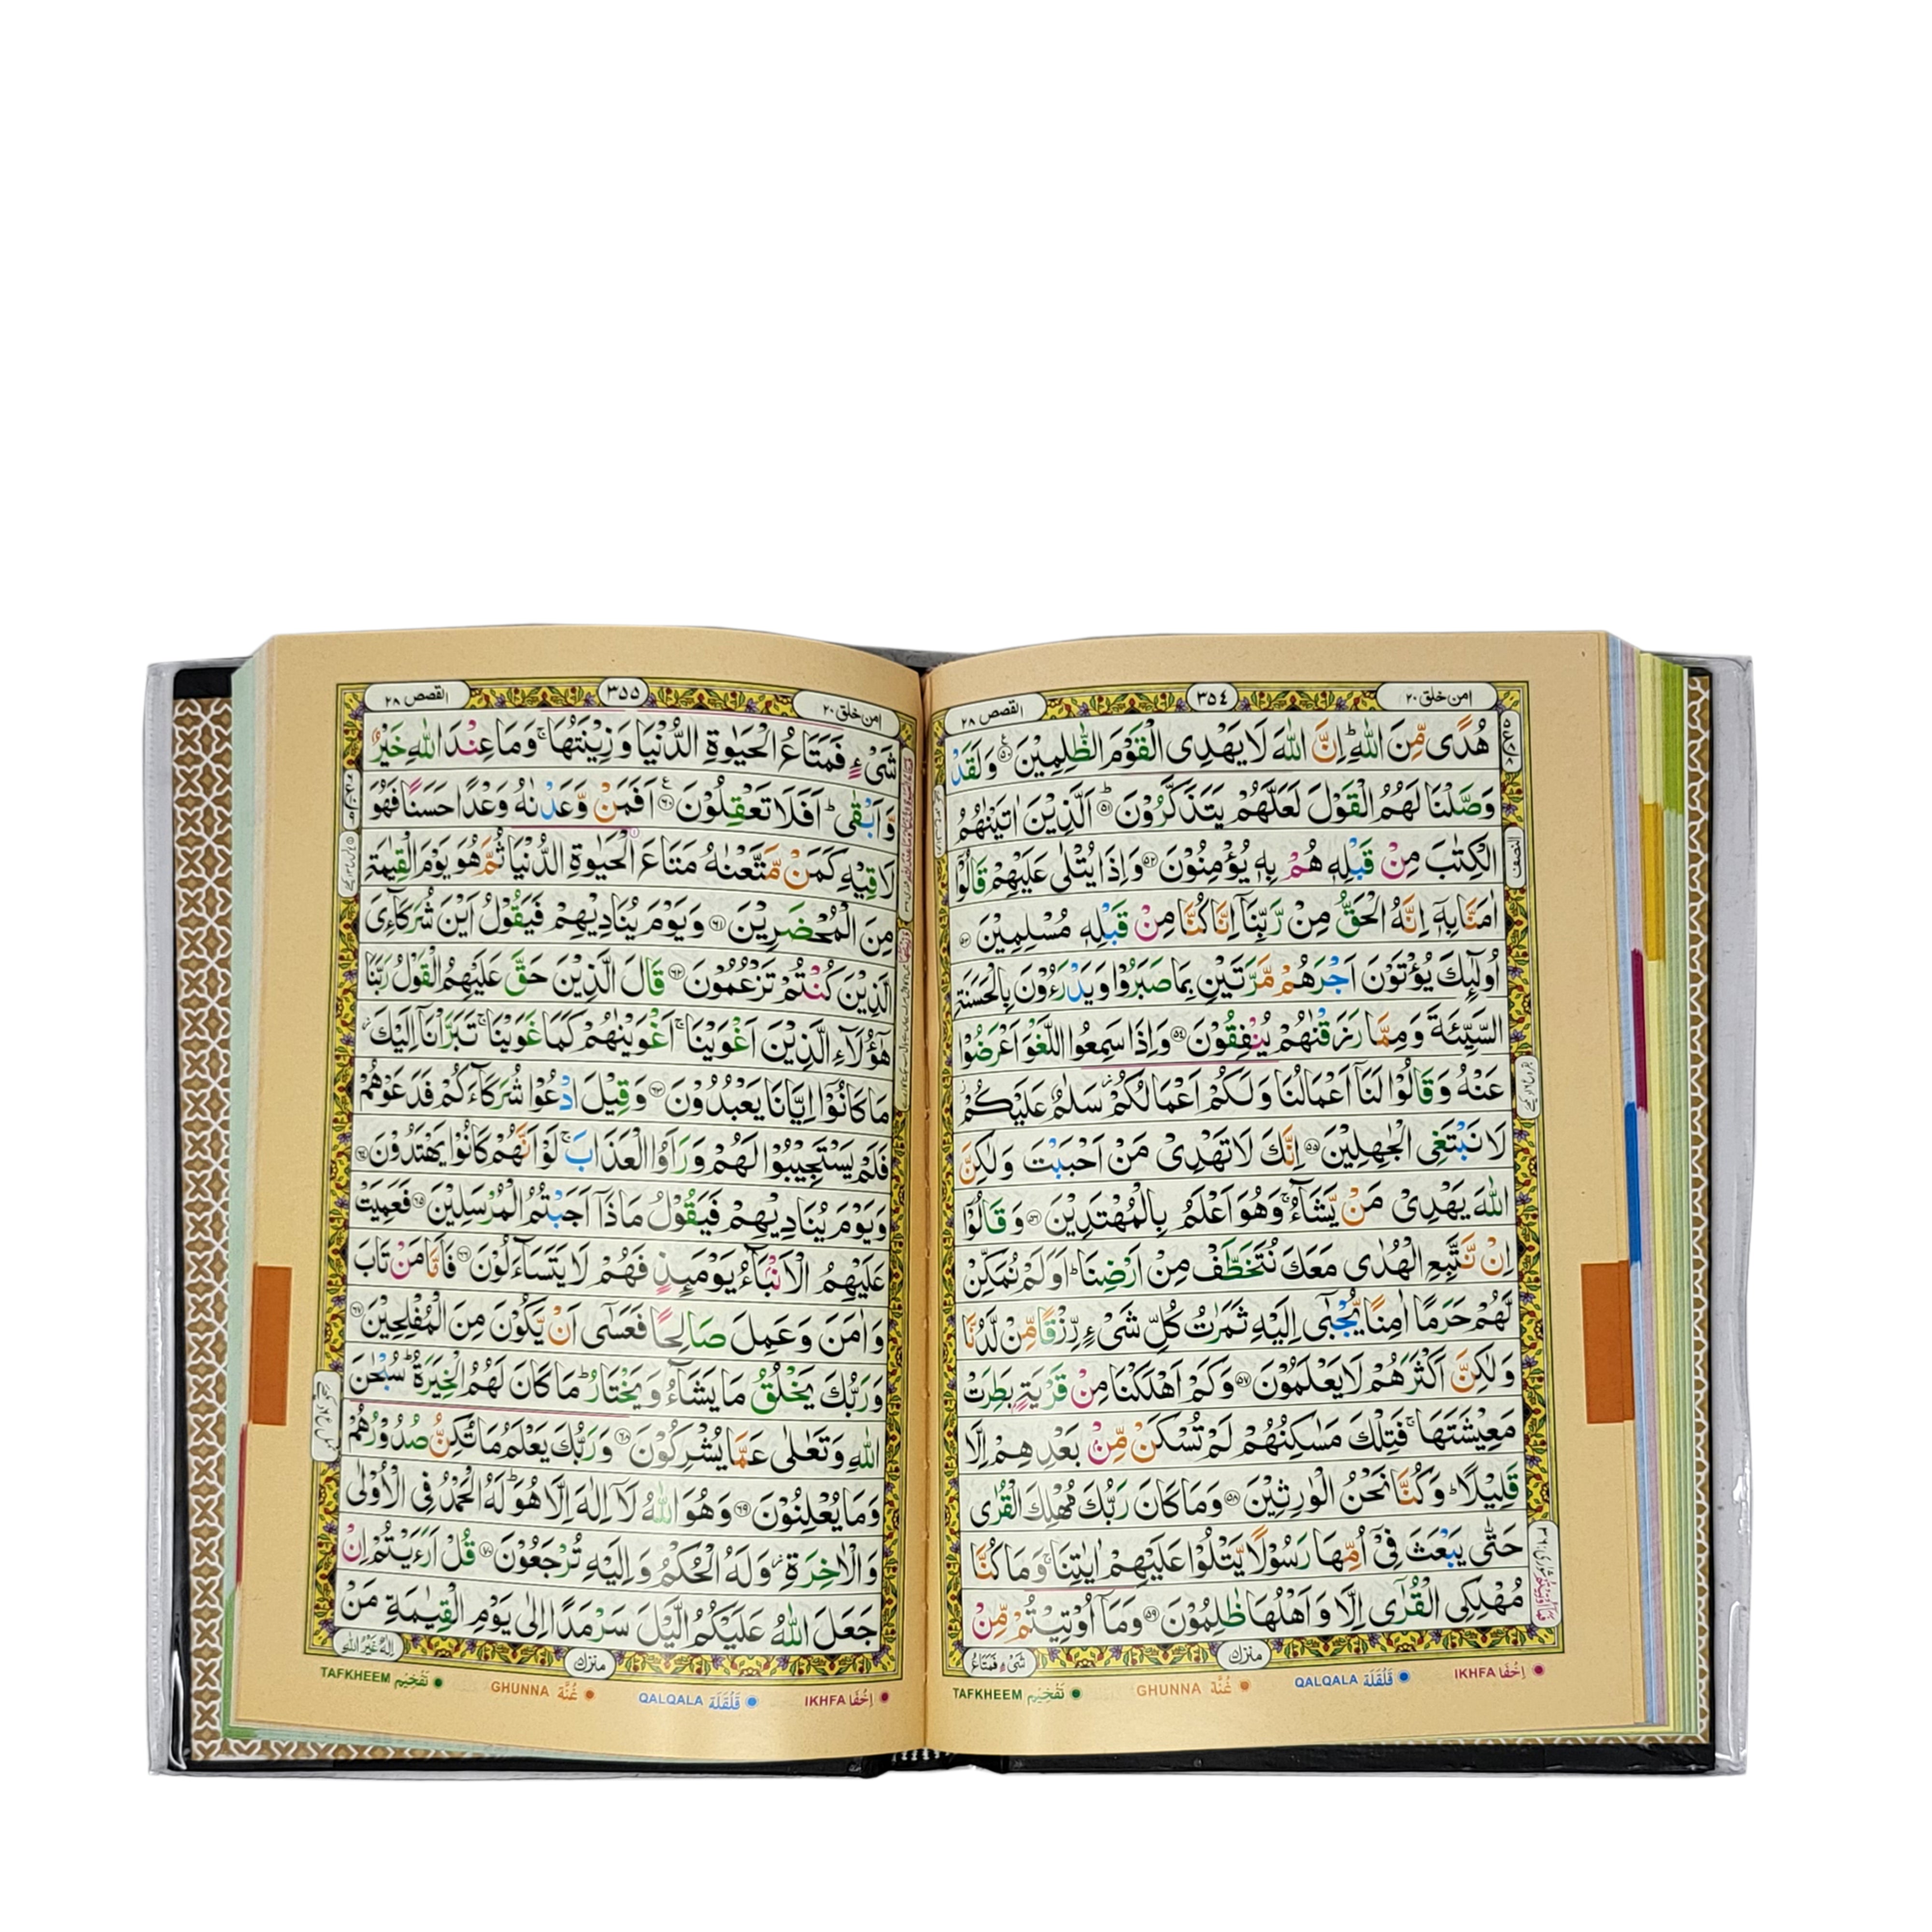 امن خلق ٢٠
٣٥٤
القصص ٢٨
هُدًى مِّنَ اللّٰهِ ؕ اِنَّ اللّٰهَ لَا يَهْدِى الْقَوْمَ الظّٰلِمِيْنَ ۝٥٠ وَلَقَدْ
وَصَّلْنَا لَهُمُ الْقَوْلَ لَعَلَّهُمْ يَتَذَكَّرُوْنَ ؕ۝٥١ اَلَّذِيْنَ اٰتَيْنٰهُمُ
الْكِتٰبَ مِنْ قَبْلِهٖ هُمْ بِهٖ يُؤْمِنُوْنَ ۝٥٢ وَاِذَا يُتْلٰى عَلَيْهِمْ قَالُوْٓا
اٰمَنَّا بِهٖٓ اِنَّهُ الْحَقُّ مِنْ رَّبِّنَآ اِنَّا كُنَّا مِنْ قَبْلِهٖ مُسْلِمِيْنَ ۝٥٣
اُولٰٓئِكَ يُؤْتَوْنَ اَجْرَهُمْ مَّرَّتَيْنِ بِمَا صَبَرُوْا وَيَدْرَءُوْنَ بِالْحَسَنَةِ
السَّيِّئَةَ وَمِمَّا رَزَقْنٰهُمْ يُنْفِقُوْنَ ۝٥٤ وَاِذَا سَمِعُوا اللَّغْوَ اَعْرَضُوْا
عَنْهُ وَقَالُوْا لَنَآ اَعْمَالُنَا وَلَكُمْ اَعْمَالُكُمْ ز سَلٰمٌ عَلَيْكُمْ ز
لَا نَبْتَغِى الْجٰهِلِيْنَ ۝٥٥ اِنَّكَ لَا تَهْدِىْ مَنْ اَحْبَبْتَ وَلٰكِنَّ
اللّٰهَ يَهْدِىْ مَنْ يَّشَآءُ ۚ وَهُوَ اَعْلَمُ بِالْمُهْتَدِيْنَ ۝٥٦ وَقَالُوْٓا
اِنْ نَّتَّبِعِ الْهُدٰى مَعَكَ نُتَخَطَّفْ مِنْ اَرْضِنَا ؕ اَوَلَمْ نُمَكِّنْ
لَّهُمْ حَرَمًا اٰمِنًا يُّجْبٰٓى اِلَيْهِ ثَمَرٰتُ كُلِّ شَىْءٍ رِّزْقًا مِّنْ لَّدُنَّا
وَلٰكِنَّ اَكْثَرَهُمْ لَا يَعْلَمُوْنَ ۝٥٧ وَكَمْ اَهْلَكْنَا مِنْ قَرْيَةٍۭ بَطِرَتْ
مَعِيْشَتَهَا ۚ فَتِلْكَ مَسٰكِنُهُمْ لَمْ تُسْكَنْ مِّنْۢ بَعْدِهِمْ اِلَّا
قَلِيْلًا ؕ وَكُنَّا نَحْنُ الْوٰرِثِيْنَ ۝٥٨ وَمَا كَانَ رَبُّكَ مُهْلِكَ الْقُرٰى
حَتّٰى يَبْعَثَ فِىْٓ اُمِّهَا رَسُوْلًا يَّتْلُوْا عَلَيْهِمْ اٰيٰتِنَا ۚ وَمَا كُنَّا
مُهْلِكِى الْقُرٰٓى اِلَّا وَاَهْلُهَا ظٰلِمُوْنَ ۝٥٩ وَمَآ اُوْتِيْتُمْ مِّنْ
النصف
منزل
شَىْءٍ فَمَتَاعُ
IKHFA اِخْفَا
QALQALA قَلْقَلَة
GHUNNA غُنَّة
TAFKHEEM تَفْخِيْم
امن خلق ٢٠
٣٥٥
القصص ٢٨
شَىْءٍ فَمَتَاعُ الْحَيٰوةِ الدُّنْيَا وَزِيْنَتُهَا ۚ وَمَا عِنْدَ اللّٰهِ خَيْرٌ
وَّاَبْقٰى ؕ اَفَلَا تَعْقِلُوْنَ ۝٦٠ اَفَمَنْ وَّعَدْنٰهُ وَعْدًا حَسَنًا فَهُوَ
لَاقِيْهِ كَمَنْ مَّتَّعْنٰهُ مَتَاعَ الْحَيٰوةِ الدُّنْيَا ثُمَّ هُوَ يَوْمَ الْقِيٰمَةِ
مِنَ الْمُحْضَرِيْنَ ۝٦١ وَيَوْمَ يُنَادِيْهِمْ فَيَقُوْلُ اَيْنَ شُرَكَآءِىَ
الَّذِيْنَ كُنْتُمْ تَزْعُمُوْنَ ۝٦٢ قَالَ الَّذِيْنَ حَقَّ عَلَيْهِمُ الْقَوْلُ رَبَّنَا
هٰٓؤُلَآءِ الَّذِيْنَ اَغْوَيْنَا ۚ اَغْوَيْنٰهُمْ كَمَا غَوَيْنَا ۚ تَبَرَّاْنَآ اِلَيْكَ ز
مَا كَانُوْٓا اِيَّانَا يَعْبُدُوْنَ ۝٦٣ وَقِيْلَ ادْعُوْا شُرَكَآءَكُمْ فَدَعَوْهُمْ
فَلَمْ يَسْتَجِيْبُوْا لَهُمْ وَرَاَوُا الْعَذَابَ ۚ لَوْ اَنَّهُمْ كَانُوْا يَهْتَدُوْنَ ۝٦٤
وَيَوْمَ يُنَادِيْهِمْ فَيَقُوْلُ مَاذَآ اَجَبْتُمُ الْمُرْسَلِيْنَ ۝٦٥ فَعَمِيَتْ
عَلَيْهِمُ الْاَنْۢبَآءُ يَوْمَئِذٍ فَهُمْ لَا يَتَسَآءَلُوْنَ ۝٦٦ فَاَمَّا مَنْ تَابَ
وَاٰمَنَ وَعَمِلَ صَالِحًا فَعَسٰٓى اَنْ يَّكُوْنَ مِنَ الْمُفْلِحِيْنَ ۝٦٧
وَرَبُّكَ يَخْلُقُ مَا يَشَآءُ وَيَخْتَارُ ؕ مَا كَانَ لَهُمُ الْخِيَرَةُ ؕ سُبْحٰنَ
اللّٰهِ وَتَعٰلٰى عَمَّا يُشْرِكُوْنَ ۝٦٨ وَرَبُّكَ يَعْلَمُ مَا تُكِنُّ صُدُوْرُهُمْ
وَمَا يُعْلِنُوْنَ ۝٦٩ وَهُوَ اللّٰهُ لَآ اِلٰهَ اِلَّا هُوَ ؕ لَهُ الْحَمْدُ فِى الْاُوْلٰى
وَالْاٰخِرَةِ ز وَلَهُ الْحُكْمُ وَاِلَيْهِ تُرْجَعُوْنَ ۝٧٠ قُلْ اَرَءَيْتُمْ اِنْ
جَعَلَ اللّٰهُ عَلَيْكُمُ الَّيْلَ سَرْمَدًا اِلٰى يَوْمِ الْقِيٰمَةِ مَنْ
منزل
اِلٰهٌ غَيْرُ اللّٰهِ
IKHFA اِخْفَا
QALQALA قَلْقَلَة
GHUNNA غُنَّة
TAFKHEEM تَفْخِيْم